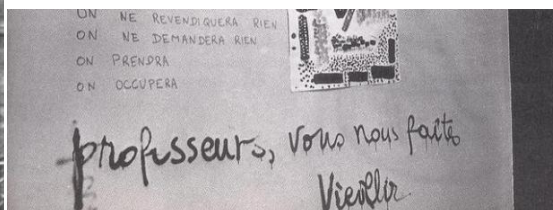 ON NE REVENDIQUERA RIEN
ON NE DEMANDERA RIEN
ON PRENDRA
ON OCCUPERA
professeurs, vous nous faites
Vieillir